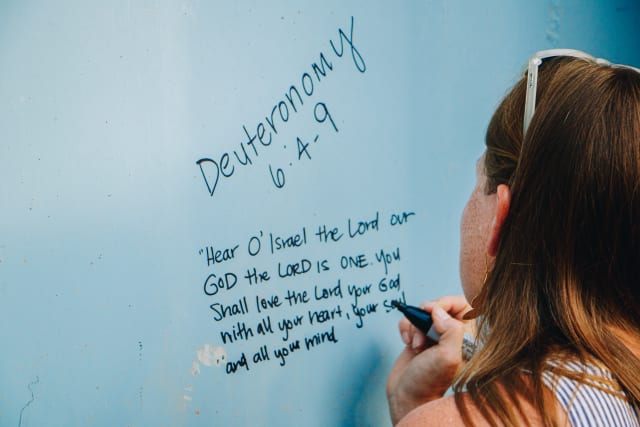 Deuteronomy
6:4-9
"Hear O' Israel the Lord our
GOD the LORD IS ONE. You
Shall love the Lord your God
with all your heart, your soul
and all your mind